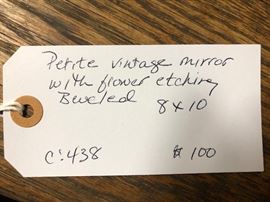 Petite vintage mirror
with flower etching
Beveled 8x10
c:438 $100